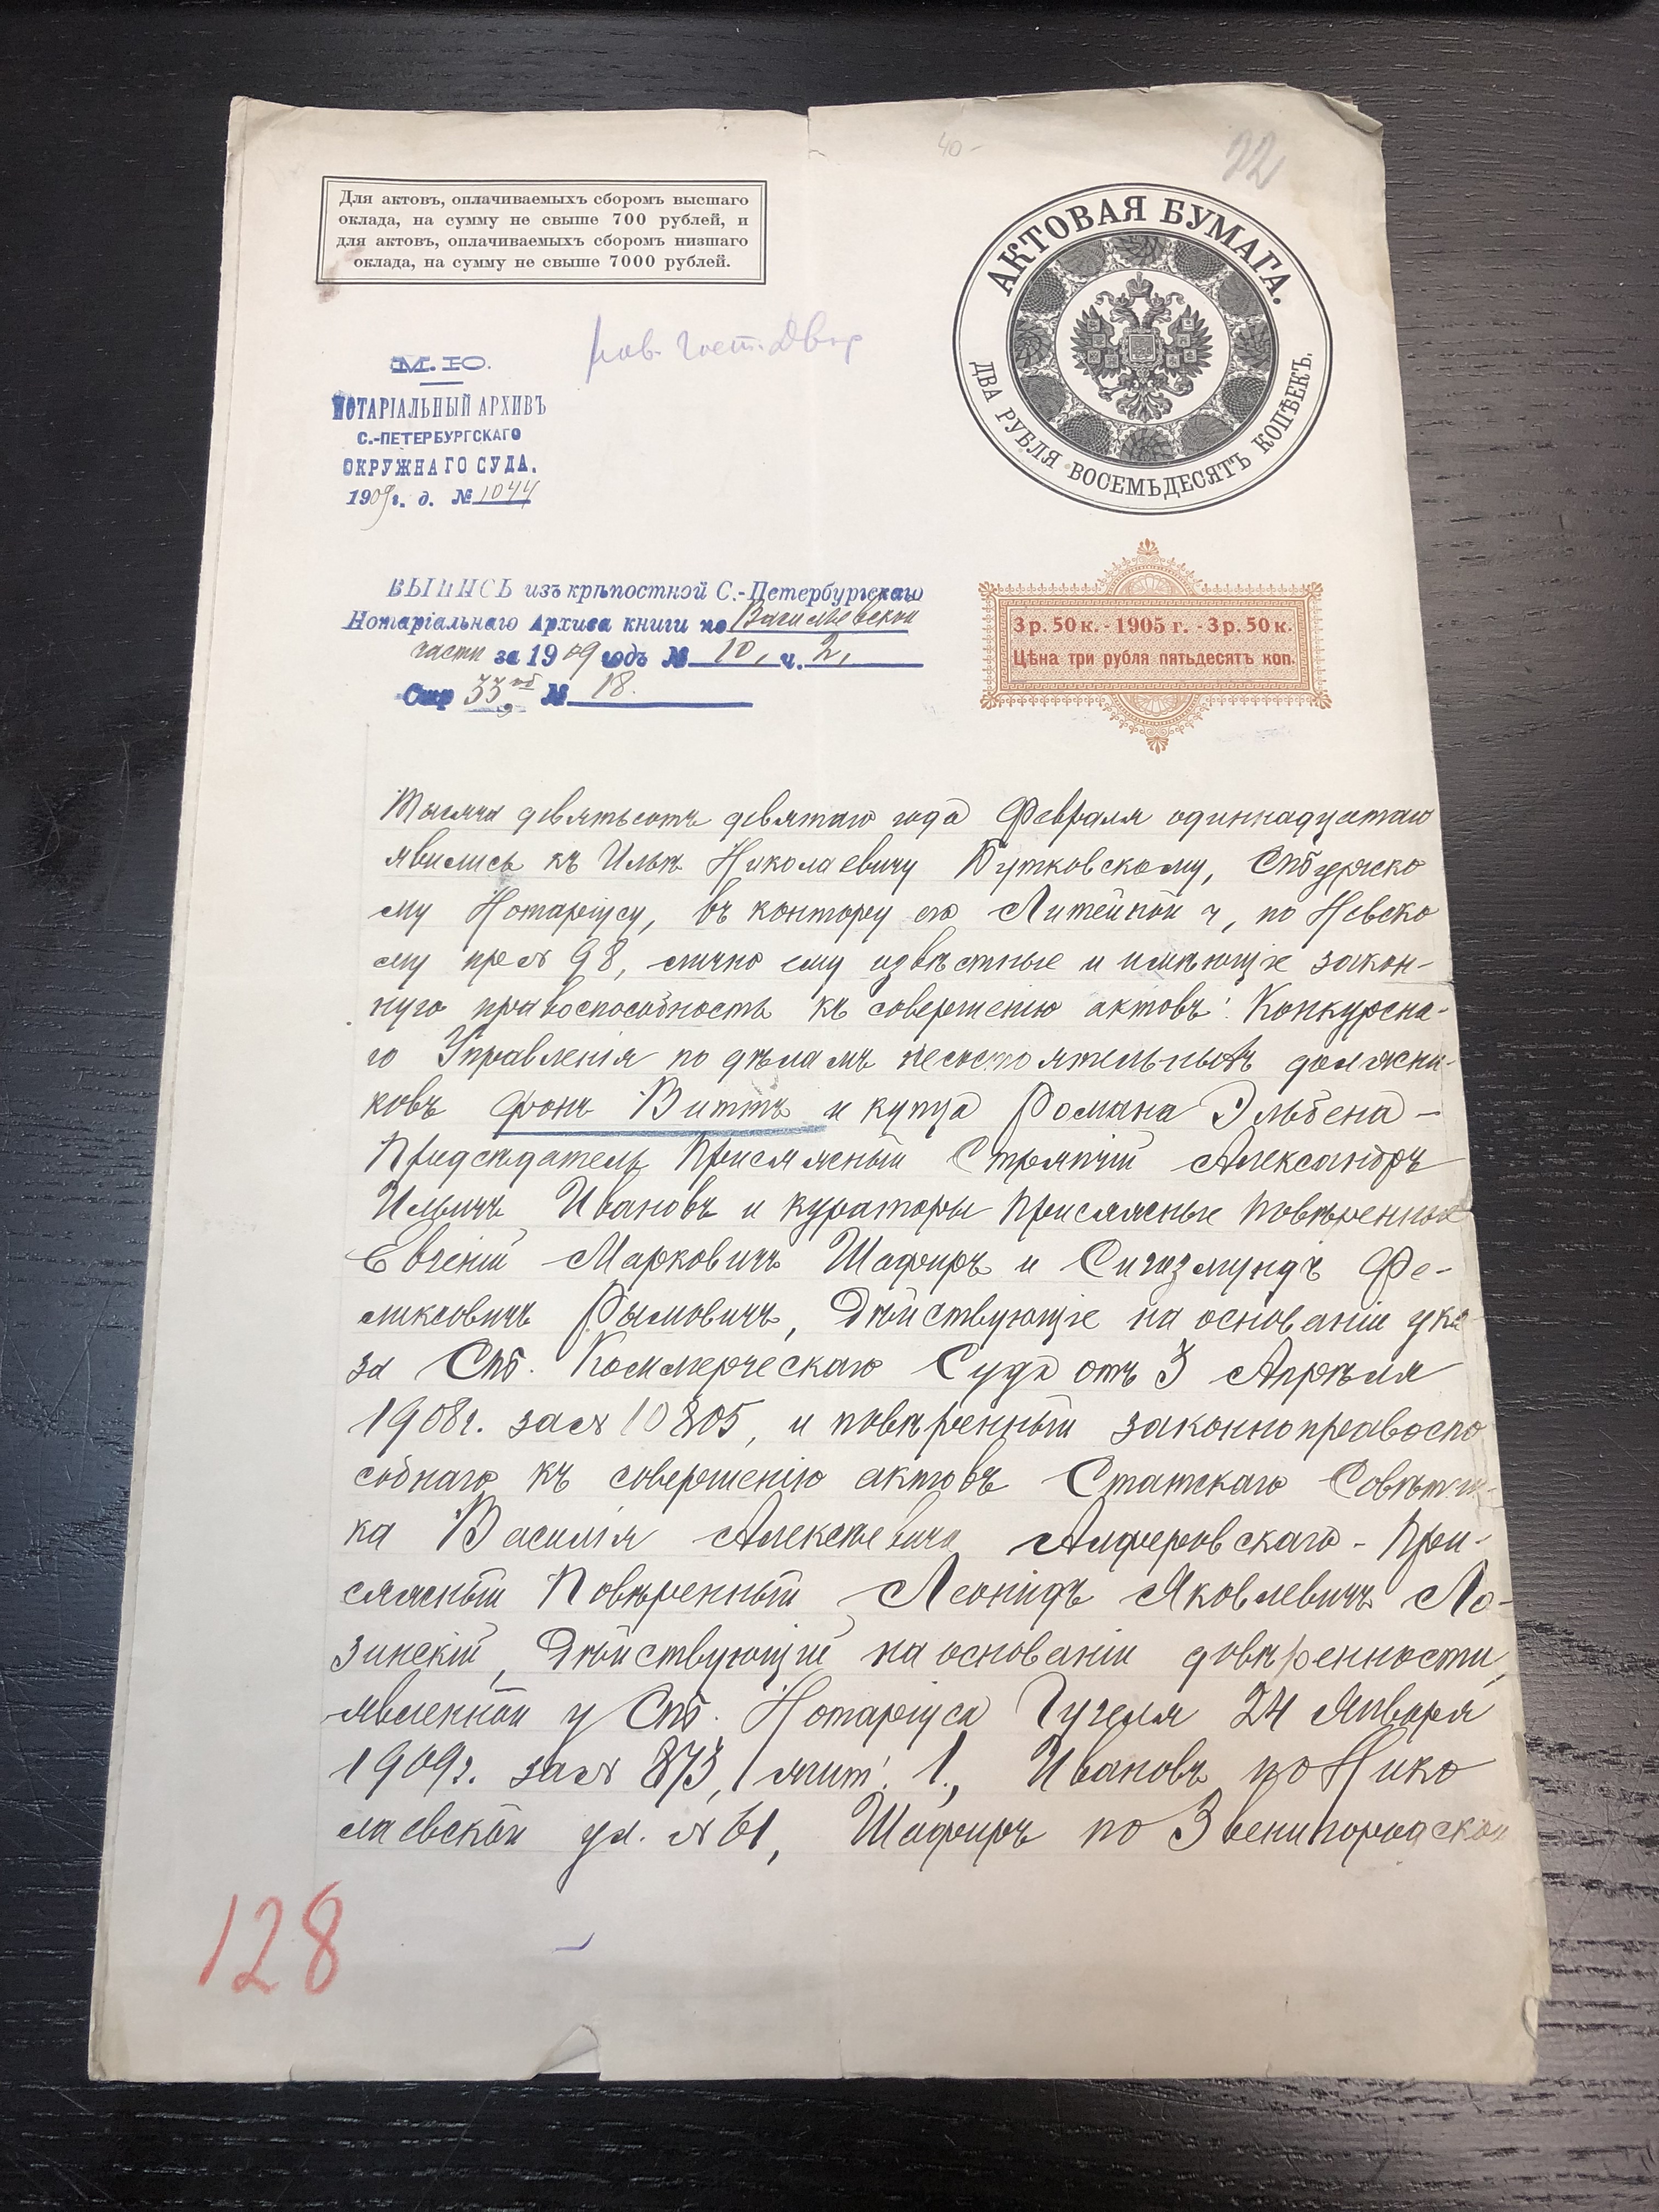 40-
22
Для актовъ, оплачиваемыхъ сборомъ высшаго
оклада, на сумму не свыше 700 рублей, и
для актовъ, оплачиваемыхъ сборомъ низшаго
оклада, на сумму не свыше 7000 рублей.
АКТОВАЯ БУМАГА.
ДВА РУБЛЯ ВОСЕМЬДЕСЯТЪ КОПѢЕКЪ.
гост. Двор
М. Ю.
НОТАРІАЛЬНЫЙ АРХИВЪ
С.-ПЕТЕРБУРГСКАГО
ОКРУЖНАГО СУДА.
1909 г. д. № 1044
ВЫПИСЬ изъ крѣпостной С.-Петербургскаго
Нотаріальнаго Архива книги по Васильевской
части за 1909 годъ № 10, ч. 2,
Стр 33, № 18.
3 р. 50 к. - 1905 г. - 3 р. 50 к.
Цѣна три рубля пятьдесятъ коп.
Тысяча девятьсотъ девятаго года Февраля одиннадцатаго
явились къ Ильѣ Николаевичу Бутковскому, Спбургско
му Нотаріусу, въ контору его Литейной ч, по Невско
му пр. № 98, лично ему извѣстные и имѣющіе закон-
ную правоспособность къ совершенію актовъ: Конкурсна-
го Управленія по дѣламъ несостоятельныхъ должни-
ковъ фонъ Виттъ и купца Романа Эльбена -
Предсѣдатель Присяжный Стряпчій Александръ
Ильичъ Ивановъ и кураторы Присяжные Повѣренные
Евгеній Марковичъ Шафиръ и Сигизмундъ Фе-
ликсовичъ Рымовичъ, Дѣйствующіе на основаніи ука
за Спб. Коммерческаго Суда отъ 3 Апрѣля
1908г. за № 10805, и повѣренный законноправоспо
собнаго къ совершенію актовъ Статскаго Совѣтни-
ка Василія Алексѣевича Алферовскаго - При-
сяжный Повѣренный Леонидъ Яковлевичъ Ло-
зинскій, Дѣйствующій на основаніи довѣренности,
явленной у Спб. Нотаріуса Гугеля 24 Января
1909г. за № 873, / жит: 1., Ивановъ по Нико
лаевской ул. № 61, Шафиръ по Звенигородской
128